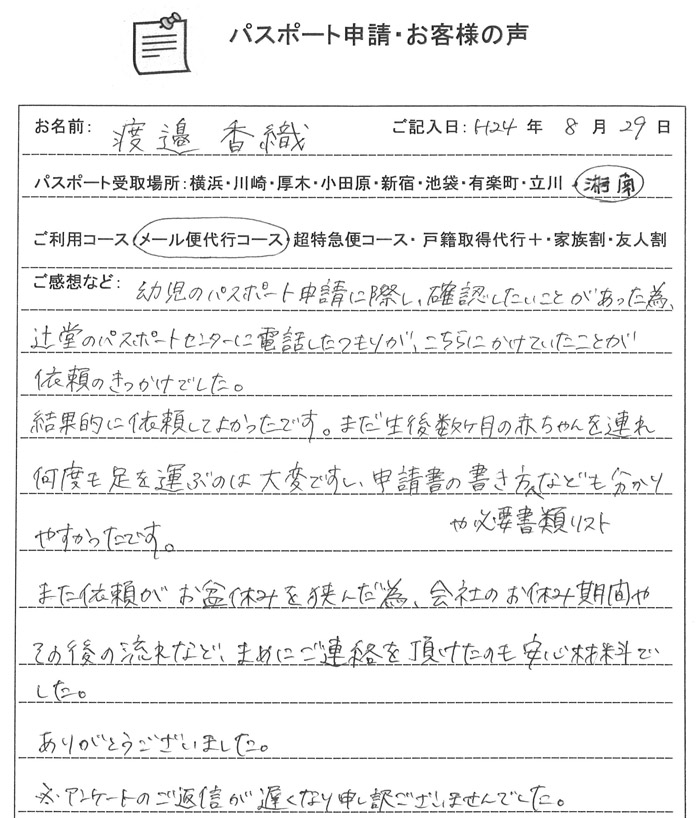 パスポート申請・お客様の声
お名前: 渡邉 香織 ご記入日: H24 年 8 月 29 日
パスポート受取場所:横浜・川崎・厚木・小田原・新宿・池袋・有楽町・立川・湘南
ご利用コース・メール便代行コース・超特急便コース・戸籍取得代行＋・家族割・友人割
ご感想など: 幼児のパスポート申請に際し、確認したいことがあった為、
辻堂のパスポートセンターに電話したつもりが、こちらにかけていたことが
依頼のきっかけでした。
結果的に依頼してよかったです。まだ生後数ヶ月の赤ちゃんを連れ
何度も足を運ぶのは大変ですし、申請書の書き方なども分かり
や必要書類リスト
やすかったです。
また依頼がお盆休みを狭んだ為、会社のお休み期間や
その後の流れなど、まめにご連絡を頂けたのも安心材料で
した。
ありがとうございました。
※アンケートのご返信が遅くなり申し訳ございませんでした。